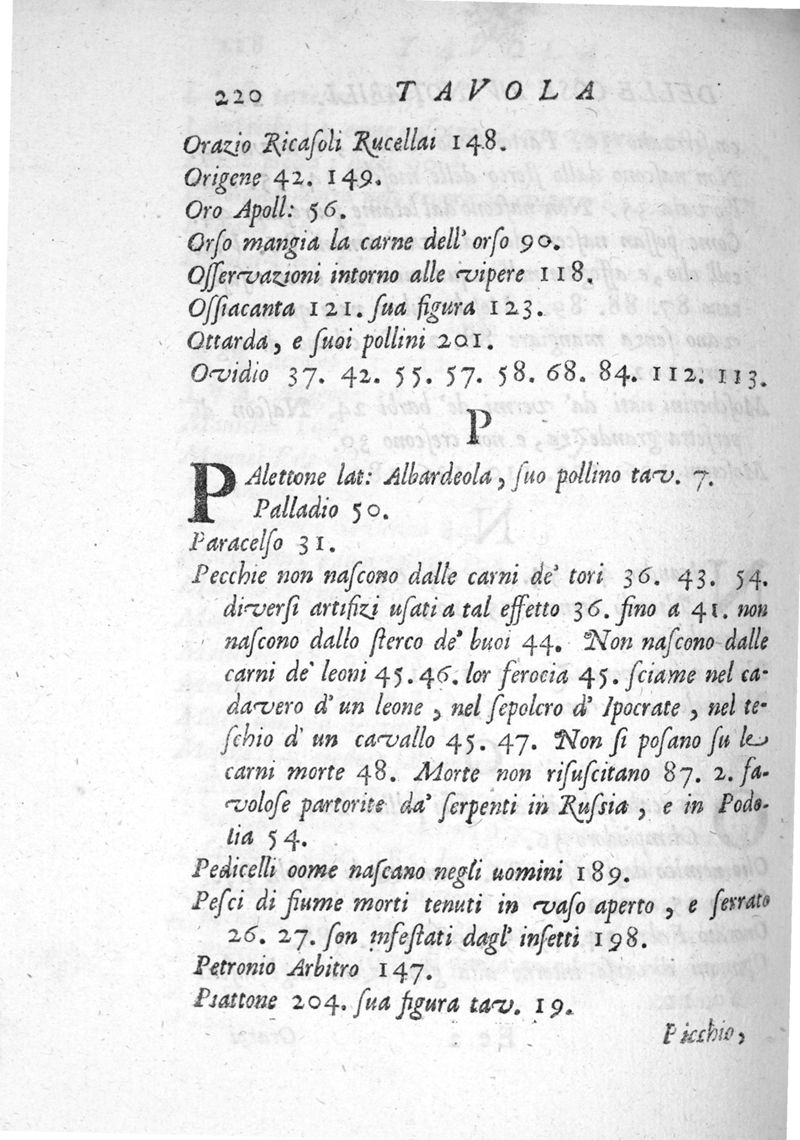 220 TAVOLA
Orazio Ricaſoli Rucellai 148.
Origene 42. 149.
Oro Apoll: 56.
Orſo mangia la carne dell' orſo 90.
Oſſervazioni intorno alle vipere 118.
Oſſiacanta 121. ſua figura 123.
Ottarda, e ſuoi pollini 201.
Ovidio 37. 42. 55. 57. 58. 68. 84. 112. 113.
P
PAlettone lat: Albardeola, ſuo pollino tav. 7.
Palladio 50.
Paracelſo 31.
Pecchie non naſcono dalle carni de' tori 36. 43. 54.
diverſi artifizi uſati a tal effetto 36. fino a 41. non
naſcono dallo ſterco de' buoi 44. Non naſcono dalle
carni de' leoni 45. 46. lor ferocia 45. ſciame nel ca-
davero d' un leone, nel ſepolcro d' Ipocrate, nel te-
ſchio d' un cavallo 45. 47. Non ſi poſano ſu le
carni morte 48. Morte non riſuſcitano 87. 2. fa-
voloſe partorite da' ſerpenti in Ruſſia, e in Podo-
lia 54.
Pedicelli oome naſcano negli uomini 189.
Peſci di fiume morti tenuti in vaſo aperto, e ſerrato
26. 27. ſon infeſtati dagl' inſetti 198.
Petronio Arbitro 147.
Piattone 204. ſua figura tav. 19.
Picchio,